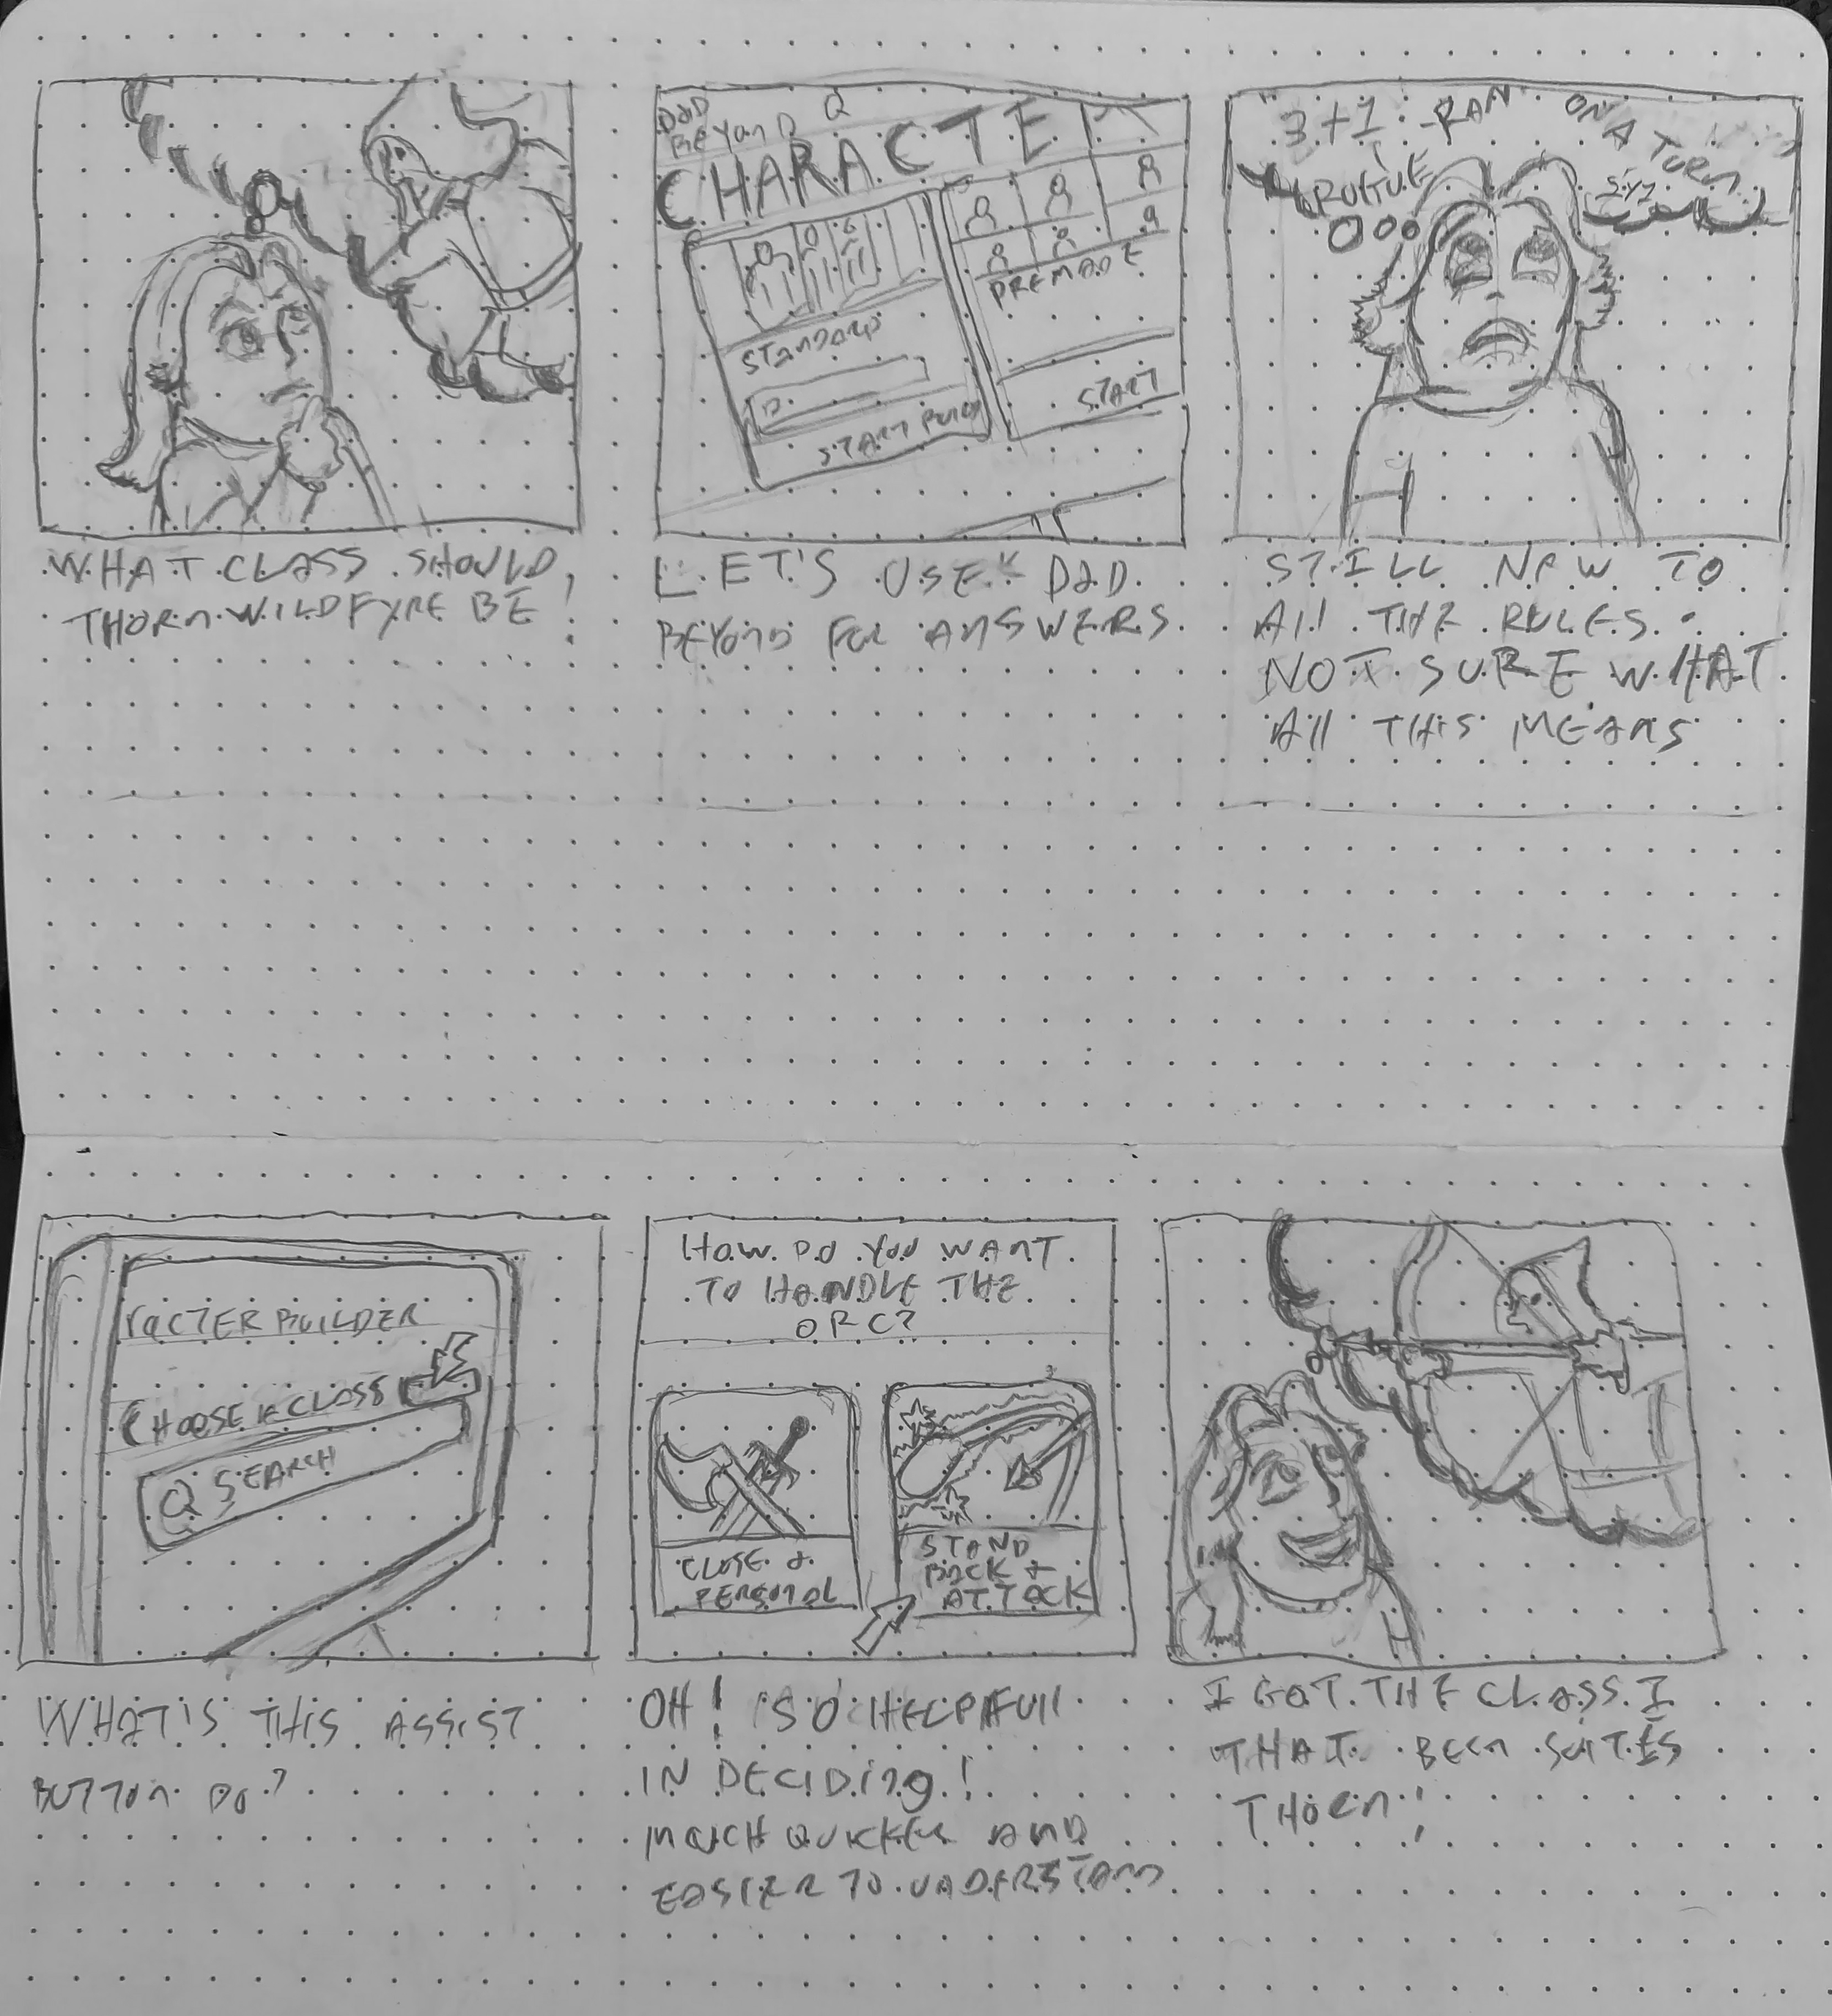 WHAT CLASS SHOULD
THORN WILDFYRE BE
D&D
BEYOND
CHARACTE
STANDARD
START BUILD
PREMADE
START
LET'S USE D&D
BEYOND FOR ANSWERS
"3+1 -RAN" ON A TURN
STILL NEW TO
All THE RULES.
NOT SURE WHAT
All THIS MEANS
RACTER BUILDER
CHOOSE A CLASS
SEARCH
WHAT'S THIS ASSIST
BUTTON DO?
HOW DO YOU WANT
TO HANDLE THE
ORC?
CLOSE &
PERSONAL
STAND
BACK +
ATTACK
OH! SO HELPFUll
IN DECIDING!
MUCH QUICKER AND
EASIER TO UNDERSTAND
I GOT THE CLASS I
THAT SUITES
THORN!